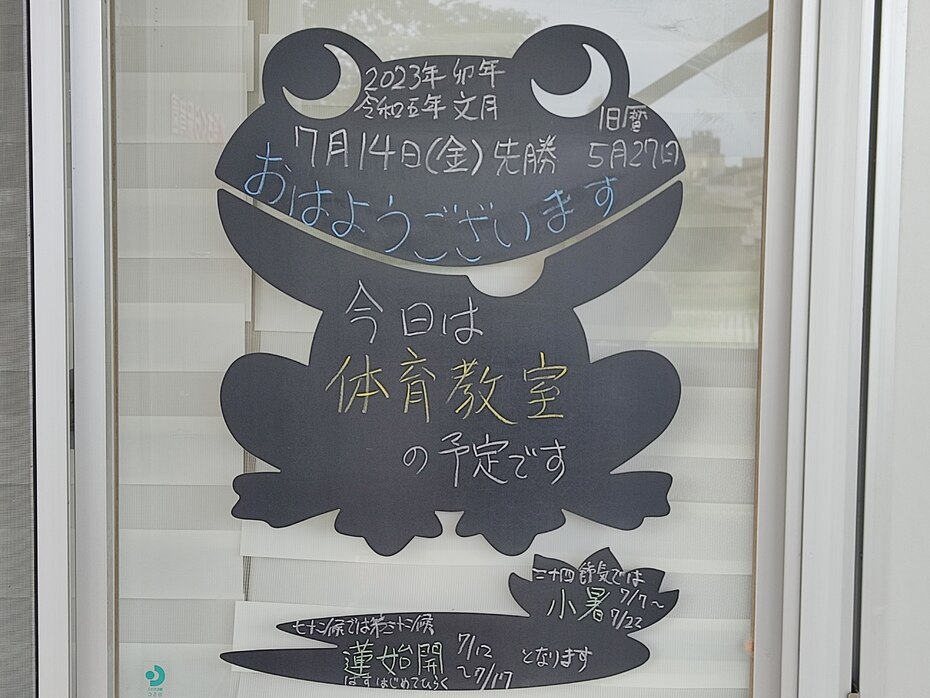 2023年 卯年
令和五年 文月
7月14日(金) 先勝
旧暦
5月27日
おはようございます
今日は
体育教室
の予定です
二十四節気では
小暑 7/7～
7/22
七十二候では第三十二候
蓮始開 7/12
～7/17
はすはじめてひらく
となります